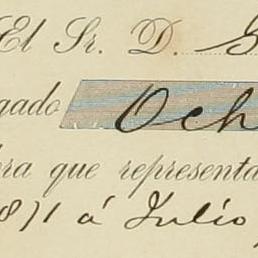 El Sr. D. G
gado Och
bra que representa
871 á Julio